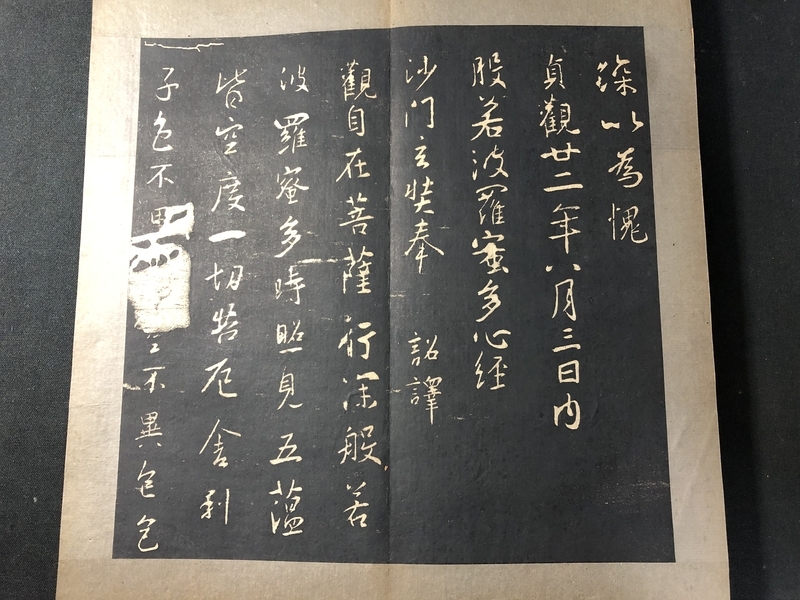 深以為愧
貞觀廿二年八月三日內
般若波羅蜜多心經
沙門玄奘奉 詔譯
觀自在菩薩行深般若
波羅蜜多時照見五蘊
皆空度一切苦厄舍利
子色不異空空不異色色